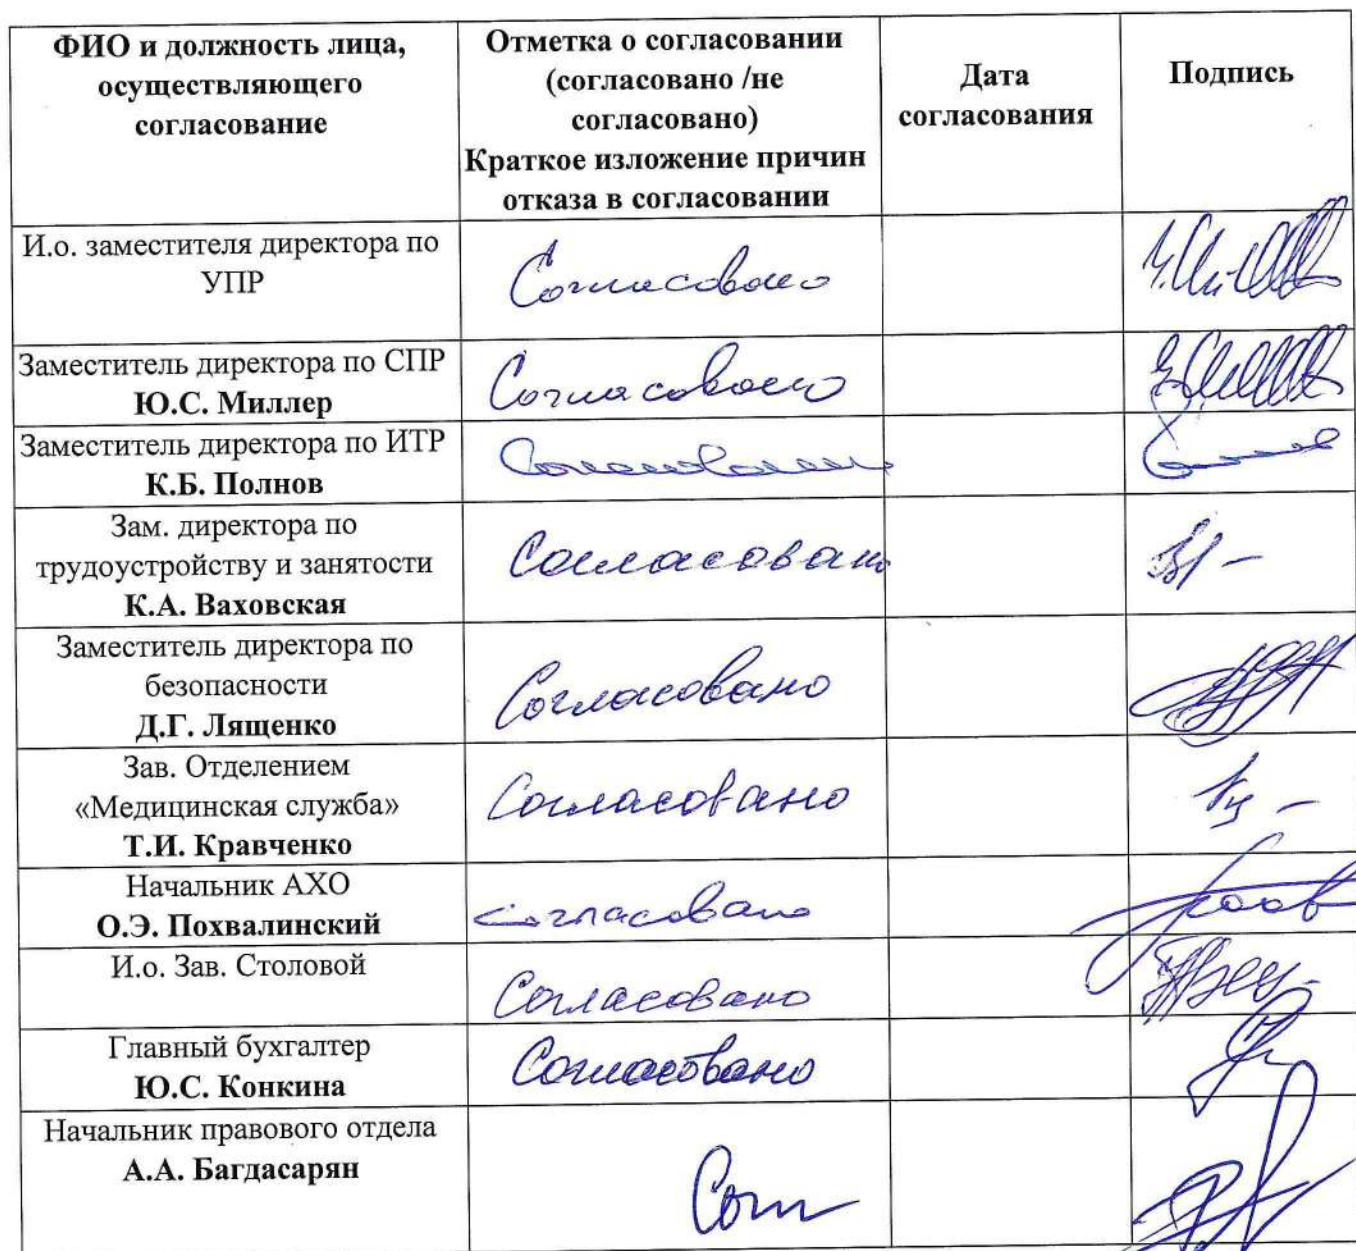 ФИО и должность лица,
осуществляющего
согласование
Отметка о согласовании
(согласовано /не
согласовано)
Краткое изложение причин
отказа в согласовании
Дата
согласования
Подпись
И.о. заместителя директора по
УПР
Согласовано
Заместитель директора по СПР
Ю.С. Миллер
Согласовано
Заместитель директора по ИТР
К.Б. Полнов
Согласовано
Зам. директора по
трудоустройству и занятости
К.А. Ваховская
Согласовано
Заместитель директора по
безопасности
Д.Г. Лященко
Согласовано
Зав. Отделением
«Медицинская служба»
Т.И. Кравченко
Согласовано
Начальник АХО
О.Э. Похвалинский
Согласовано
И.о. Зав. Столовой
Согласовано
Главный бухгалтер
Ю.С. Конкина
Согласовано
Начальник правового отдела
А.А. Багдасарян
Согл